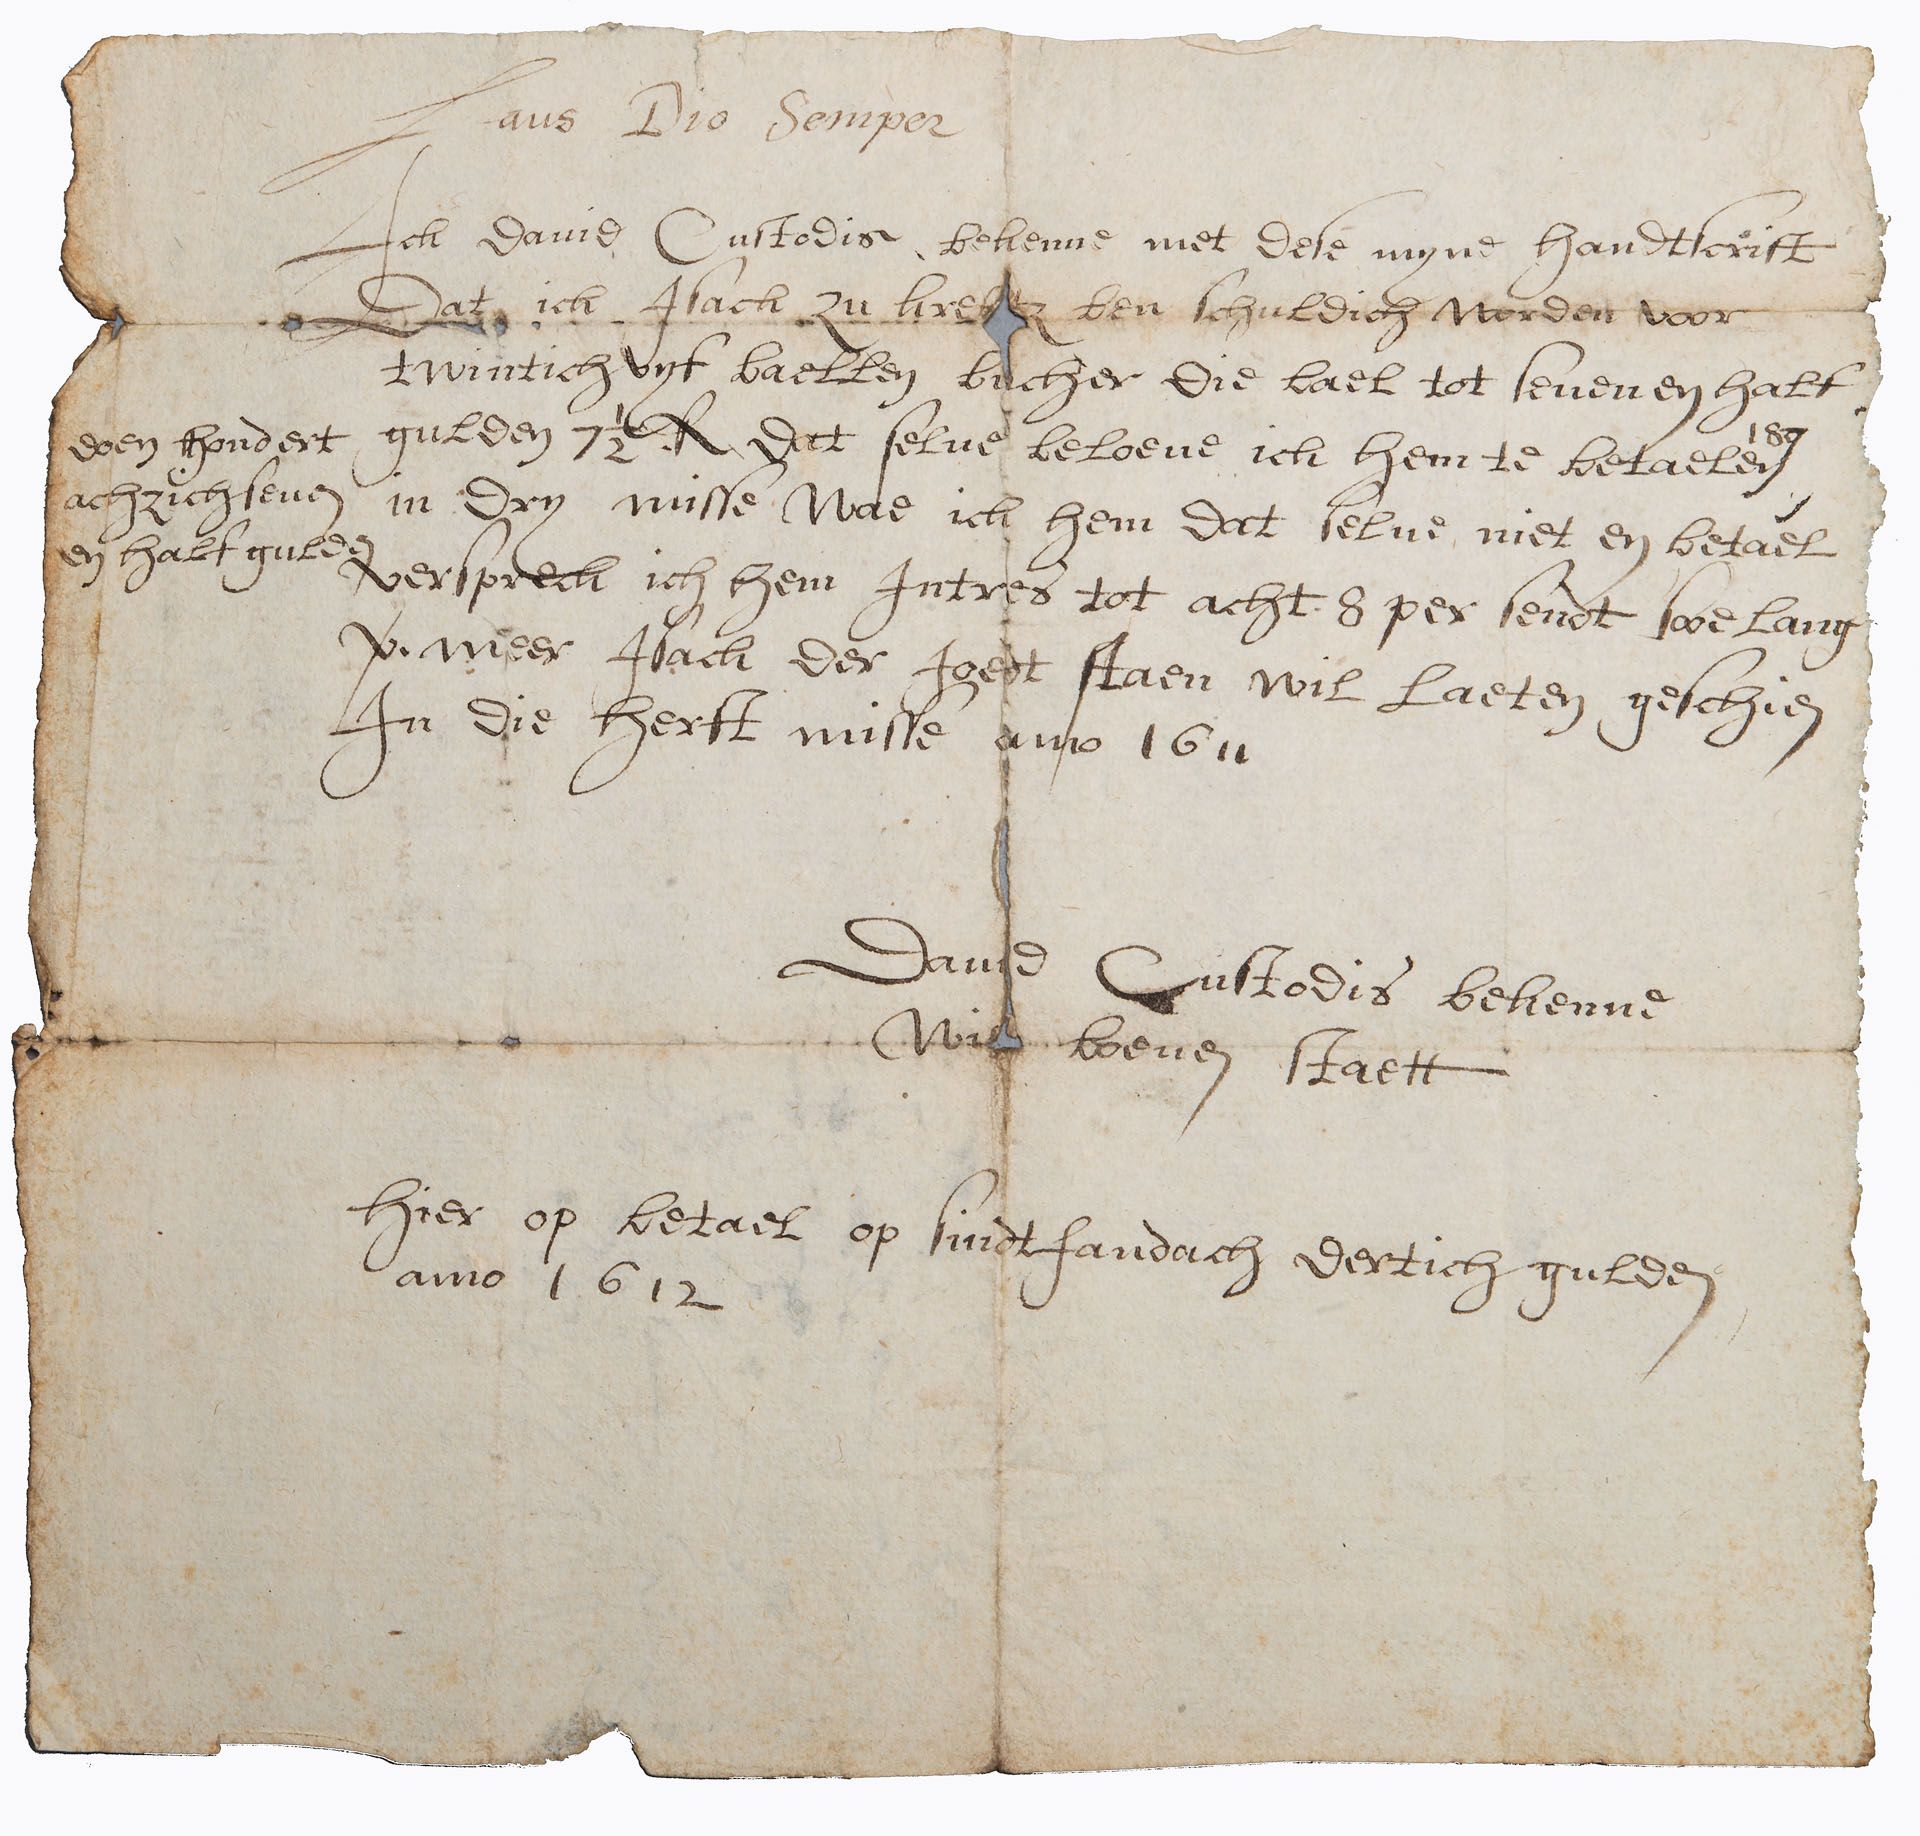 Laus Dio Semper
Ick dauid Custodis bekenne met dese myne handtscrift
Dat ick Isack zu krebz ben schuldich worden voor
twintich vyf baellen bucher die bael tot seuen en half
gulden 7 1/2 R dat selue beloeue ick hem te betaelen
189
doen hondert
achzich seuen
en half gulden
in dry misse Wae ick hem dat selue niet en betael
versprech ich hem Intres tot acht 8 per sendt soe lang
meer Isack der Joedt staen wil laeten geschien
In die herfst misse anno 1611
Dauid Custodis bekenne
Wie boeuen staett
hier op betael op sindt fandach dertich gulden
anno 1612